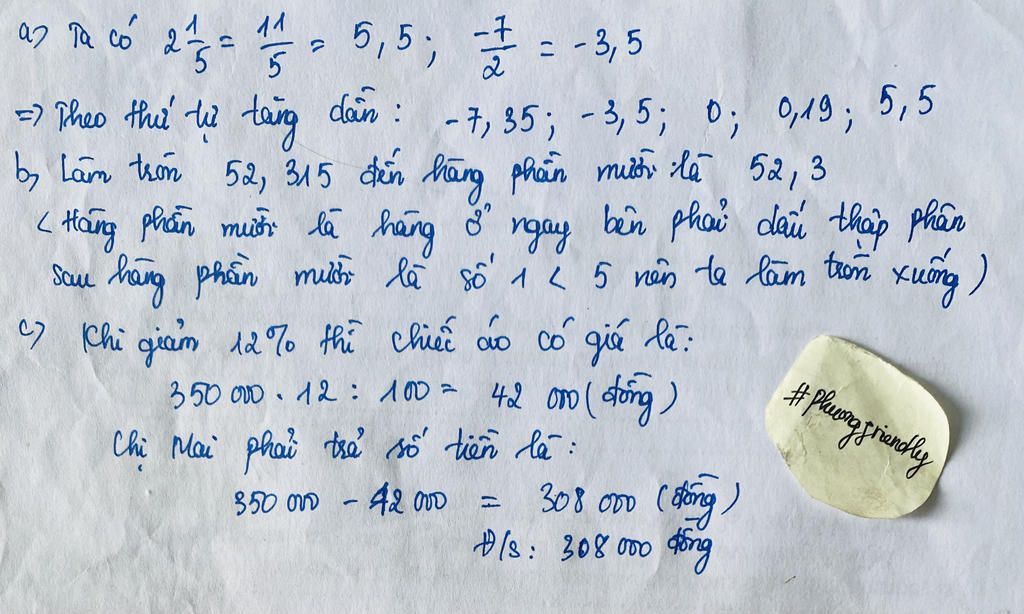 a) Ta có 2 1/5 = 11/5 = 5,5; -7/2 = -3,5
=> Theo thứ tự tăng dần: -7,35; -3,5; 0; 0,19; 5,5
b, Làm tròn 52,315 đến hàng phần mười là 52,3
< Hàng phần mười là hàng ở ngay bên phải dấu thập phân
sau hàng phần mười là số 1 < 5 nên ta làm tròn xuống)
c) Khi giảm 12% thì chiếc áo có giá là:
350 000 . 12 : 100 = 42 000 (đồng)
Chị Mai phải trả số tiền là:
350 000 - 42 000 = 308 000 (đồng)
Đ/s: 308 000 đồng
#phuongfriendly